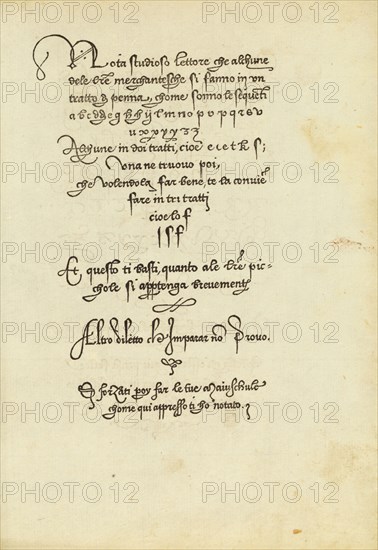 Nota studioso lettore che alchune
dele lr̃e merchantesche si fanno in un
tratto di penna, chome sonno le sequẽti
a b c d e g h i l m n o p q r s v
u x y y y z z
Alchune in doi tratti, cioe e c e t k s;
Una ne truovo poi,
che volendola far bene, te la convien
fare in tri tratti
cioe lo f
f
Et questo ti basti, quanto ale lr̃e pic-
chole si apptenga brevement
Altro diletto ch Imparar nõ Provo.
Sforzati poy far le tue Maiuschule
chome qui appresso ti ho notato.
PHOTO 12